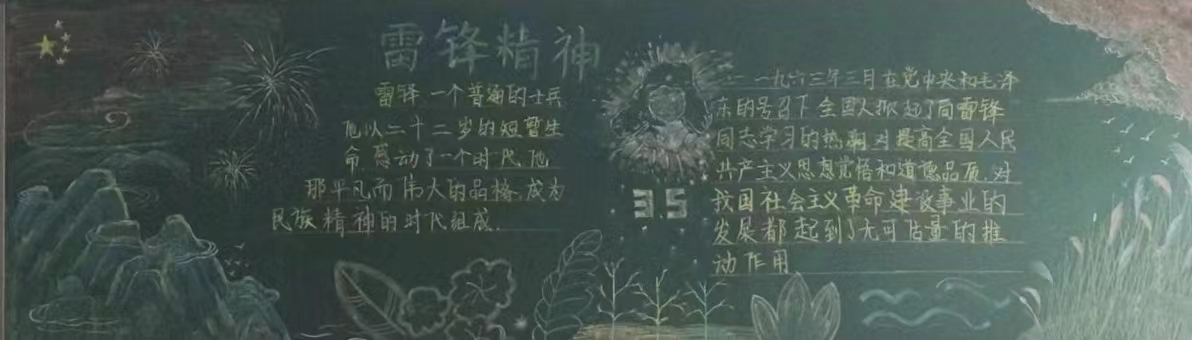 雷锋精神
雷锋,一个普通的士兵
他以二十二岁的短暂生
命,感动了一个时代,他
那平凡而伟大的品格,成为
民族精神的时代组成.
3.5
一九六三年三月在党中央和毛泽
东的号召下全国人掀起了向雷锋
同志学习的热潮,对提高全国人民
共产主义思想觉悟和道德品质,对
我国社会主义革命建设事业的
发展都起到了无可估量的推
动作用